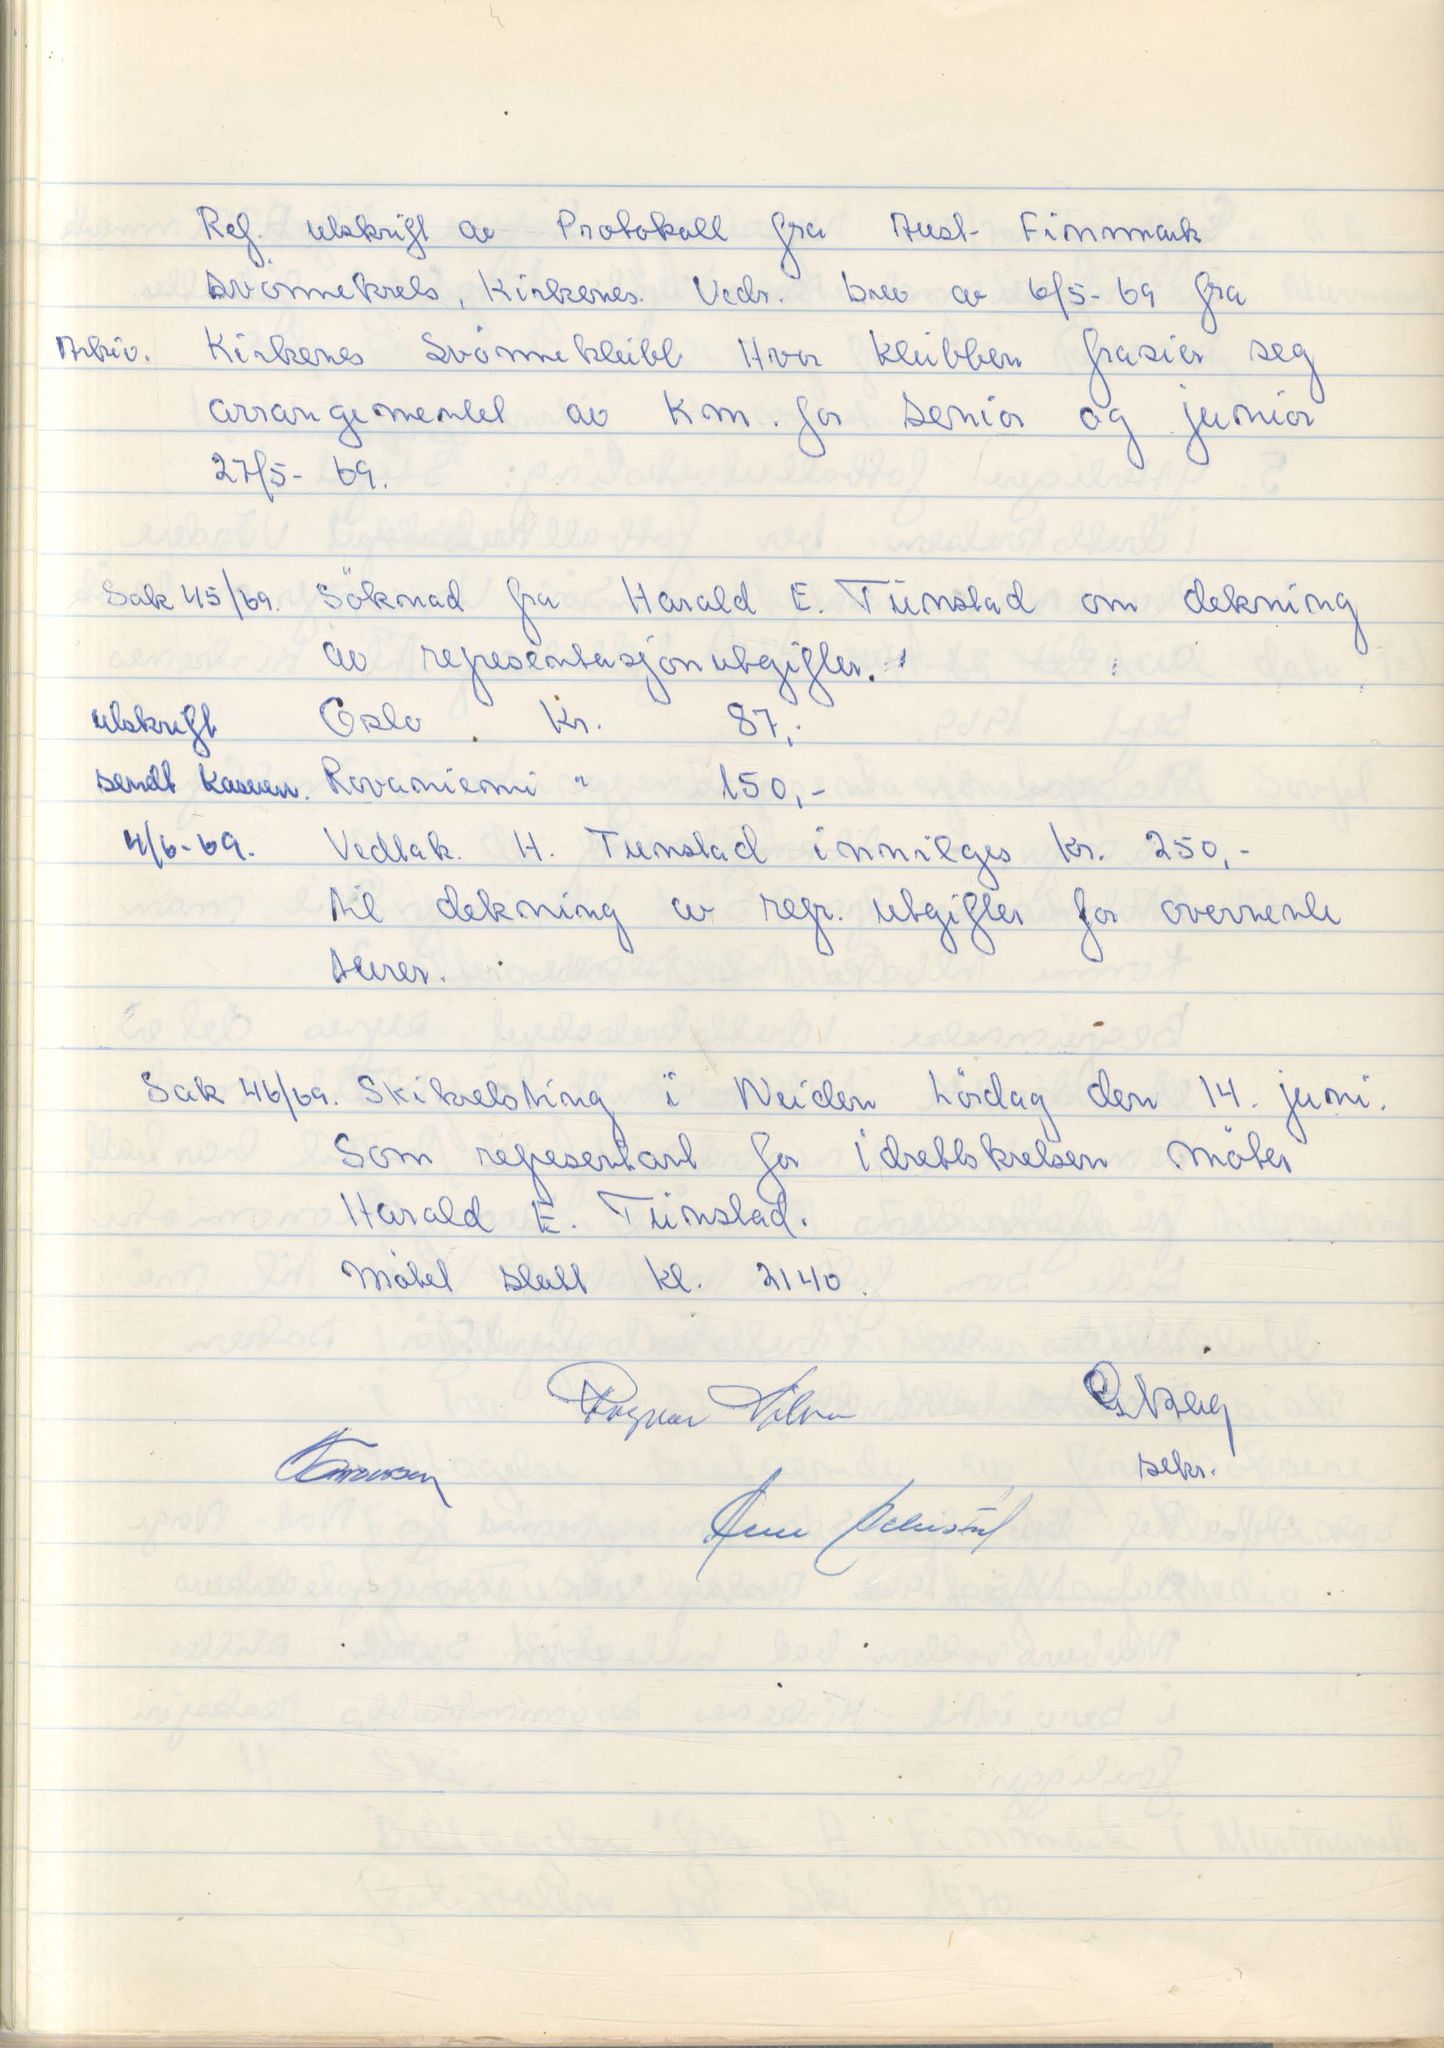 Ref. utskrift av Protokoll fra Aust-Finnmark
svömmekrets, Kirkenes. Vedr. brev av 6/5-69 fra
Arkiv. Kirkenes Svömmeklubb Hvor klubben frasier seg
arrangementet av Km. for senior og junior
27/5-69.
Sak 45/69. Söknad fra Harald E. Tunstad om dekning
av representasjonutgifter.
utskrift Oslo Kr. 87,-
sendt kasser. Rovaniemi " 150,-
4/6-69. Vedtak. H. Tunstad innvilges Kr. 250,-
til dekning av repr. utgifter for overnente
turer.
Sak 46/69. Skikretsting i Neiden Lördag den 14. juni.
Som representant for idrettskretsen möter
Harald E. Tunstad.
Mötet slutt kl. 2140.
Ragnar
sekr.